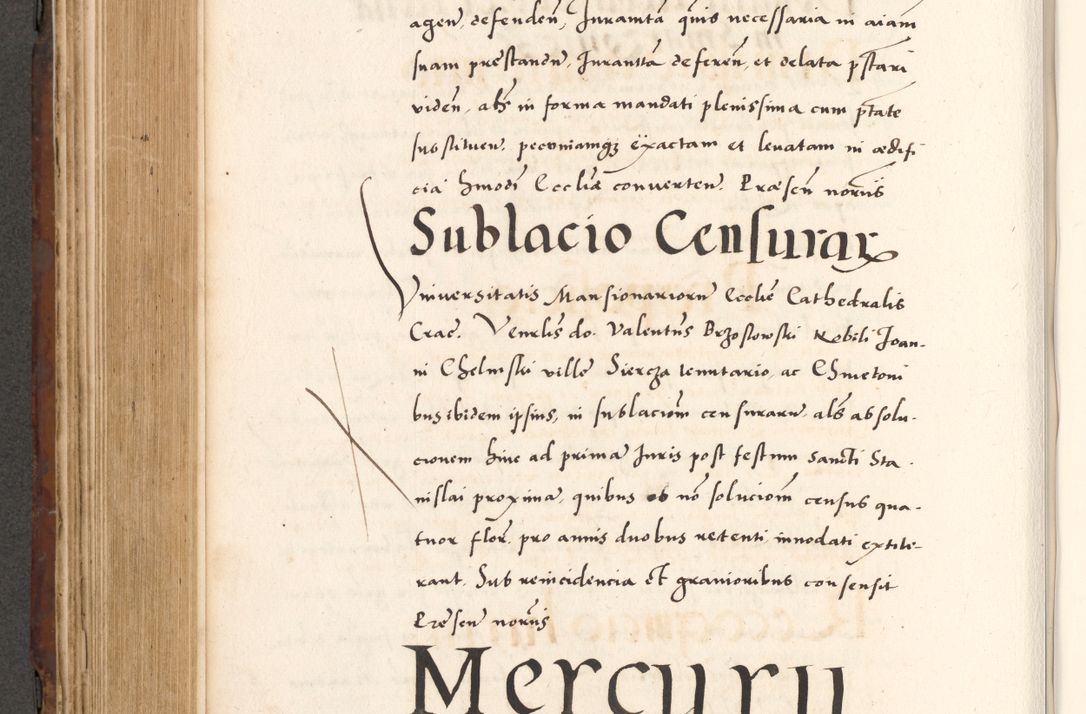 agen̄, defenden̄, Juramta quis necessaria in aīam
suam prestandn̄, Jurantta deferen̄, et delata pstari
viden̄, als in forma mandati plenissima cum ptate
substituen̄, pecuniamq; exactam et levatam in ædifi
cia hmodi Eccliæ converten̄. Præsen̄ noriis
Sublacio Censurar
Universitatis Mansionariorn̄ Ecclie Cathedralis
Crac̄. Venrlis do. Valentn̄s Brzostowski Nobili Joan-
ni Chelmski ville Siercza tenutario, ac Chmetoni
bus ibidem ipsius, in sublacion̄ censurarn̄, als absolu-
cionem hinc ad prima Juris post festum sancti Sta-
nislai proxima, quibus ob nō solucion̄ census qua-
tuor flor̄. pro annis duobus retenti, innodati extite-
rant. Sub reincidencia et gravioribus consensit
Presen̄ noriis
Mercurii